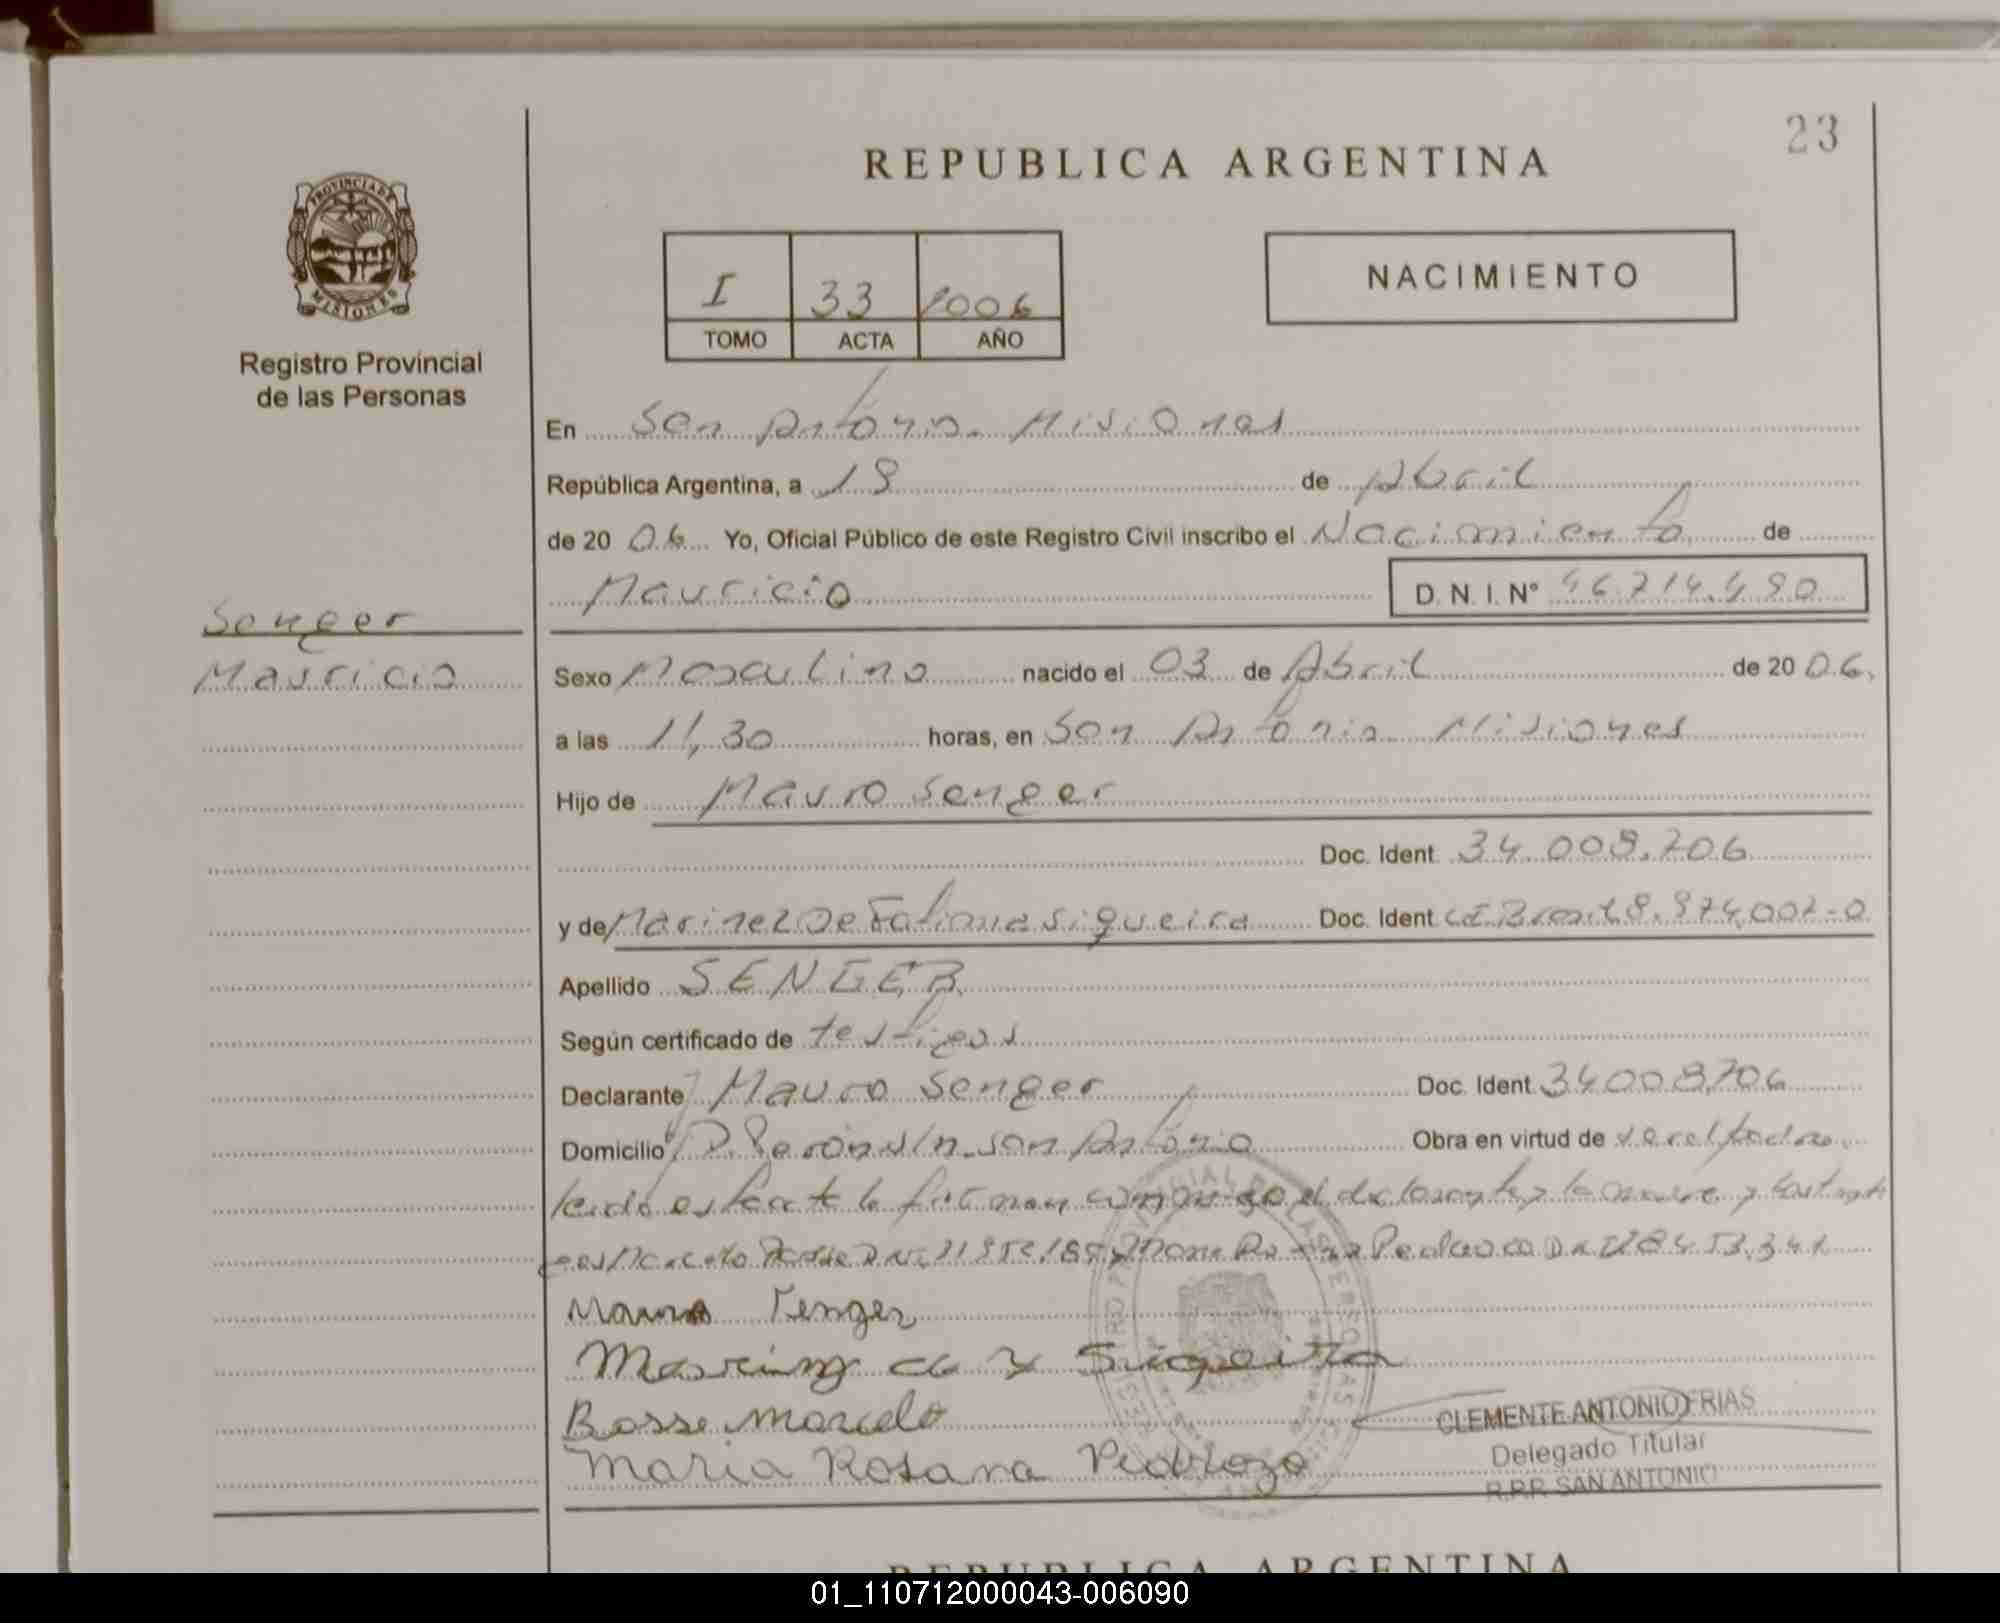 23
REPUBLICA ARGENTINA
PROVINCIA DE
MISIONES
Registro Provincial
de las Personas
I 33 2006
TOMO ACTA AÑO
NACIMIENTO
En San Antonio - Misiones
República Argentina, a 19 de Abril
de 20 06 Yo, Oficial Público de este Registro Civil inscribo el Nacimiento de
Mauricio D. N. I. N° 46.714.490
Senger
Mauricio
Sexo Masculino nacido el 03 de Abril de 20 06.
a las 11,30 horas, en San Antonio Misiones
Hijo de Mauro Senger
Doc. Ident. 34.009.706
y de Marinez De Fatima Siqueira Doc. Ident. CI Brasil 8.974.002-0
Apellido SENGER
Según certificado de testigos
Declarante Mauro Senger Doc. Ident. 34009.706
Domicilio Perón s/n - San Antonio Obra en virtud de
leida esta acta la firman conmigo el declarante, la madre y
Marcelo Maria Rosana
Mauro Senger
Siqueira
Bosse Marcelo
Maria Rosana Pedrozo
CLEMENTE ANTONIO FRIAS
Delegado Titular
R.P.P. SAN ANTONIO
REPUBLICA ARGENTINA
01_110712000043-006090